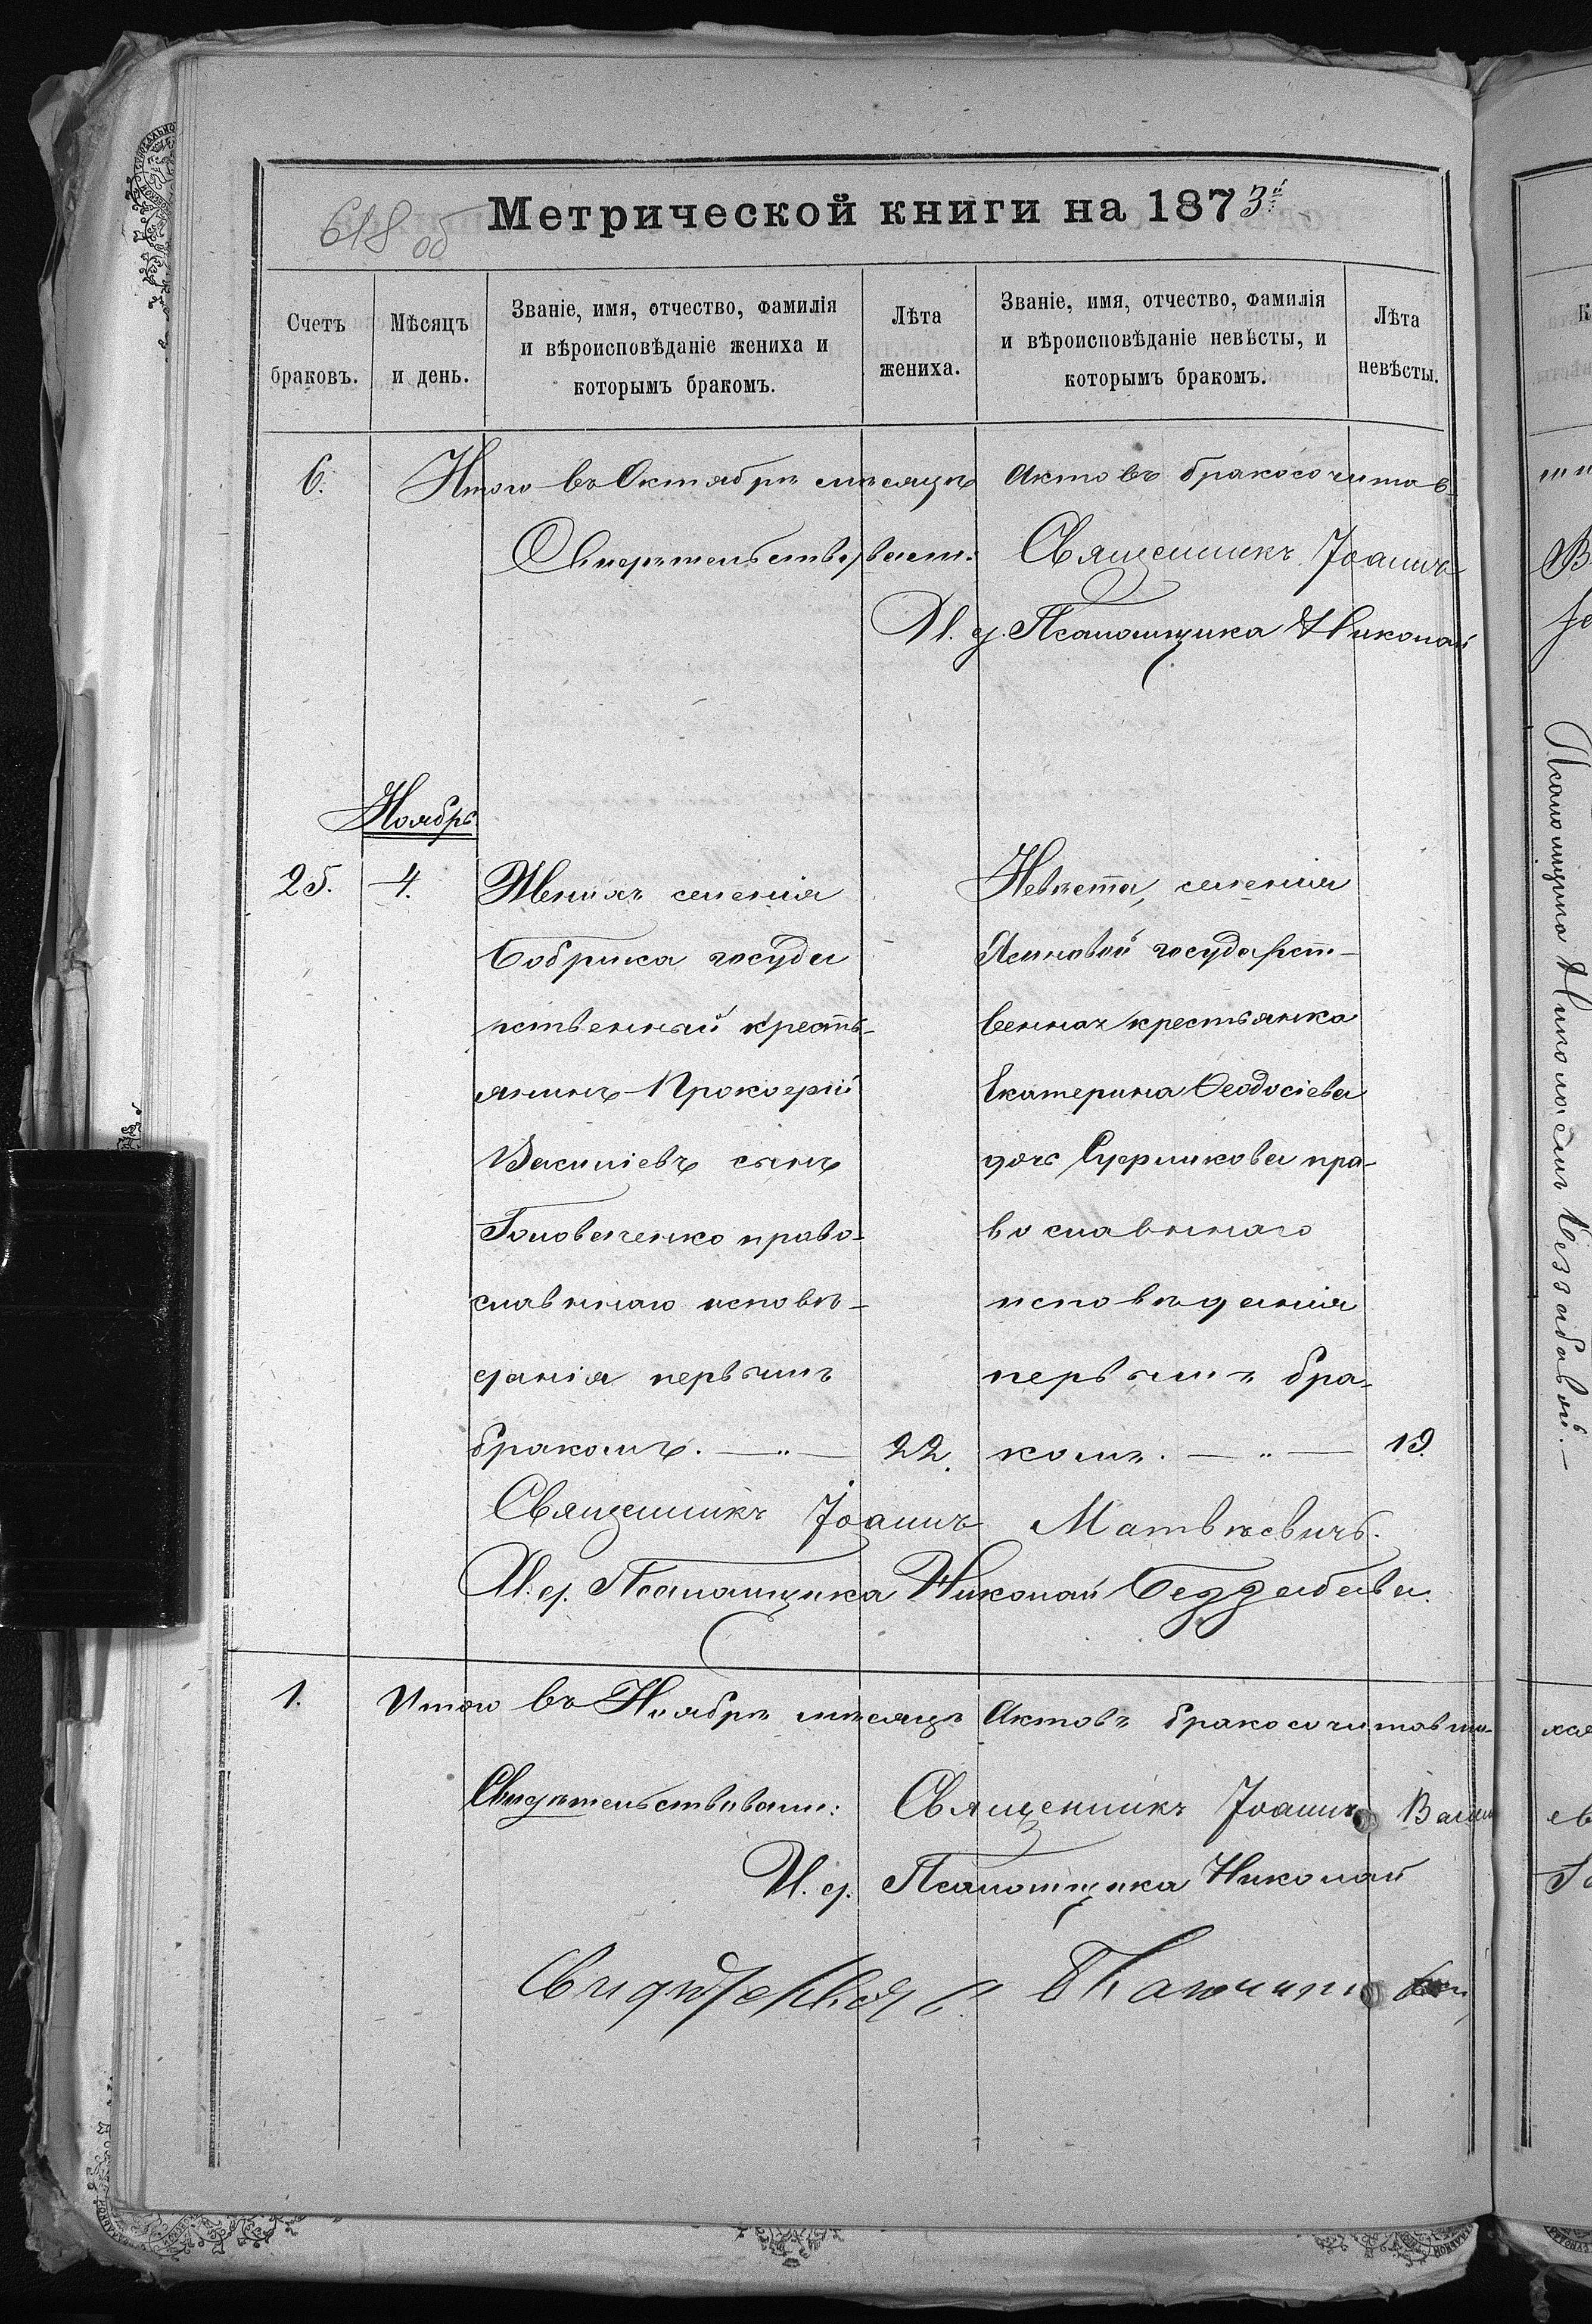 618 об
Метрической книги на 1873й
Счетъ браковъ.
Мѣсяцъ и день.
Званіе, имя, отчество, фамилія и вѣроисповѣданіе жениха и которымъ бракомъ.
Лѣта жениха.
Званіе, имя, отчество, фамилія и вѣроисповѣданіе невѣсты, и которымъ бракомъ.
Лѣта невѣсты.
6. Итого въ Октябрѣ мѣсяцѣ Актовъ бракосочитав-
Священникъ Іоаннъ
И. д. Псаломщика Николай
Ноябрь
25. 4.
Женихъ селенія
Бобрика госуда
рственный кресть-
янинъ Прокофій
Василіевъ сынъ
Головаченко право-
славнаго исповѣ-
данія первымъ
бракомъ. —„— 22.
Невѣста, селенія
Ясиновой государст-
венная крестьянка
Екатерина Ѳеодосіева
дочь пра-
вославнаго
исповѣданія
первымъ бра-
комъ. —„— 19.
Священникъ Іоаннъ Матвѣевичъ.
И. д. Псаломщика Николай Беззабава.
1. Итого въ Ноябрѣ мѣсяцѣ Актовъ бракосочитавши-
Свидѣтельствовали: Священникъ Іоаннъ
И. д. Псаломщика Николай
Псаломщика Николаемъ Беззабавой. —